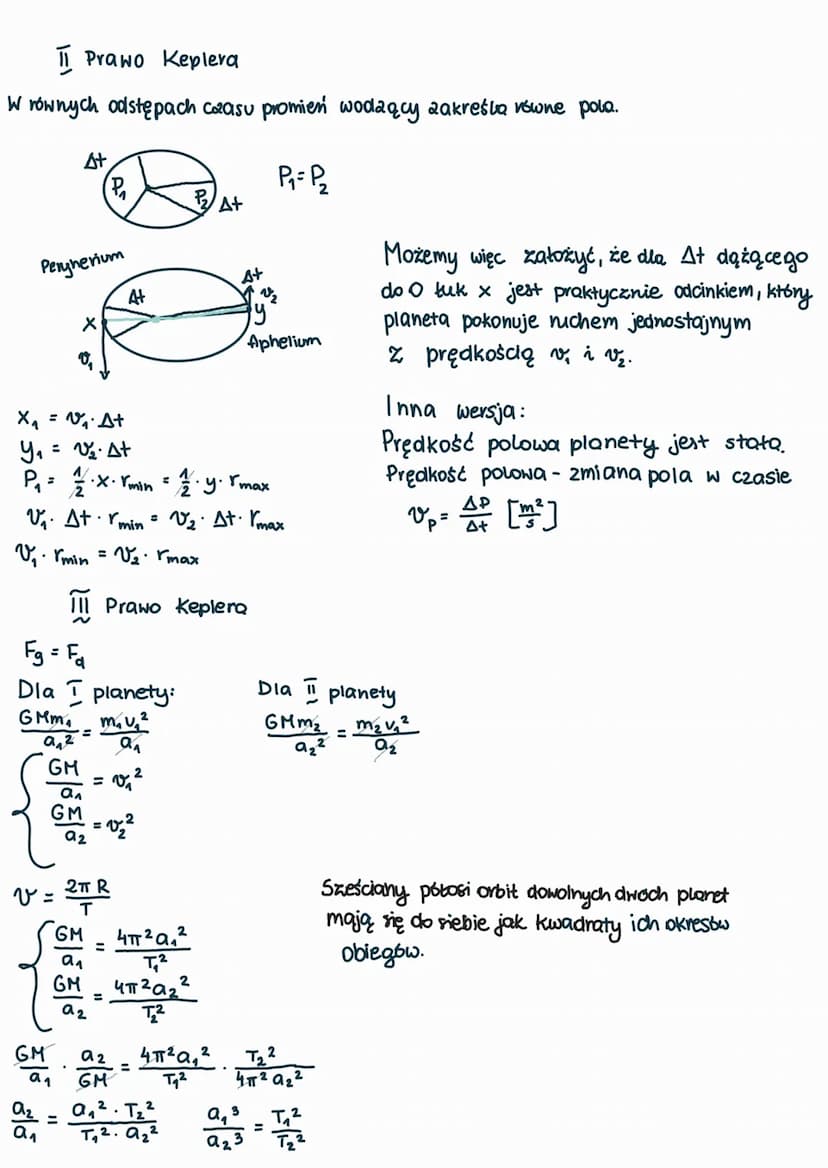 II Prawo Keplera
W równych odstępach czasu promień wodzący zakreśla równe pola.
Δt
P₁
P₂
Δt
P₁ = P₂
Peryhelium
Δt
x
v₁
Δt
v₂
y
Aphelium
Możemy więc założyć, że dla Δt dążącego
do 0 łuk x jest praktycznie odcinkiem, który
planeta pokonuje ruchem jednostajnym
z prędkością v₁ i v₂.
x₁ = v₁ · Δt
y₁ = v₂ · Δt
P₁ = 1/2 · x · rmin = 1/2 · y · rmax
v₁ · Δt · rmin = v₂ · Δt · rmax
v₁ · rmin = v₂ · rmax
Inna wersja:
Prędkość polowa planety jest stała.
Prędkość polowa - zmiana pola w czasie
vp = ΔP/Δt [m²/s]
III Prawo Keplera
Fg = Fd
Dla I planety:
GMm₁/a₁² = m₁v₁²/a₁
Dla II planety
GMm₂/a₂² = m₂v₂²/a₂
GM/a₁ = v₁²
GM/a₂ = v₂²
v = 2πR/T
GM/a₁ = 4π²a₁²/T₁²
GM/a₂ = 4π²a₂²/T₂²
Sześciany półosi orbit dowolnych dwóch planet
mają się do siebie jak kwadraty ich okresów
obiegów.
GM/a₁ · a₂/GM = 4π²a₁²/T₁² · T₂²/4π²a₂²
a₂/a₁ = a₁² · T₂²/T₁² · a₂²
a₁³/a₂³ = T₁²/T₂²